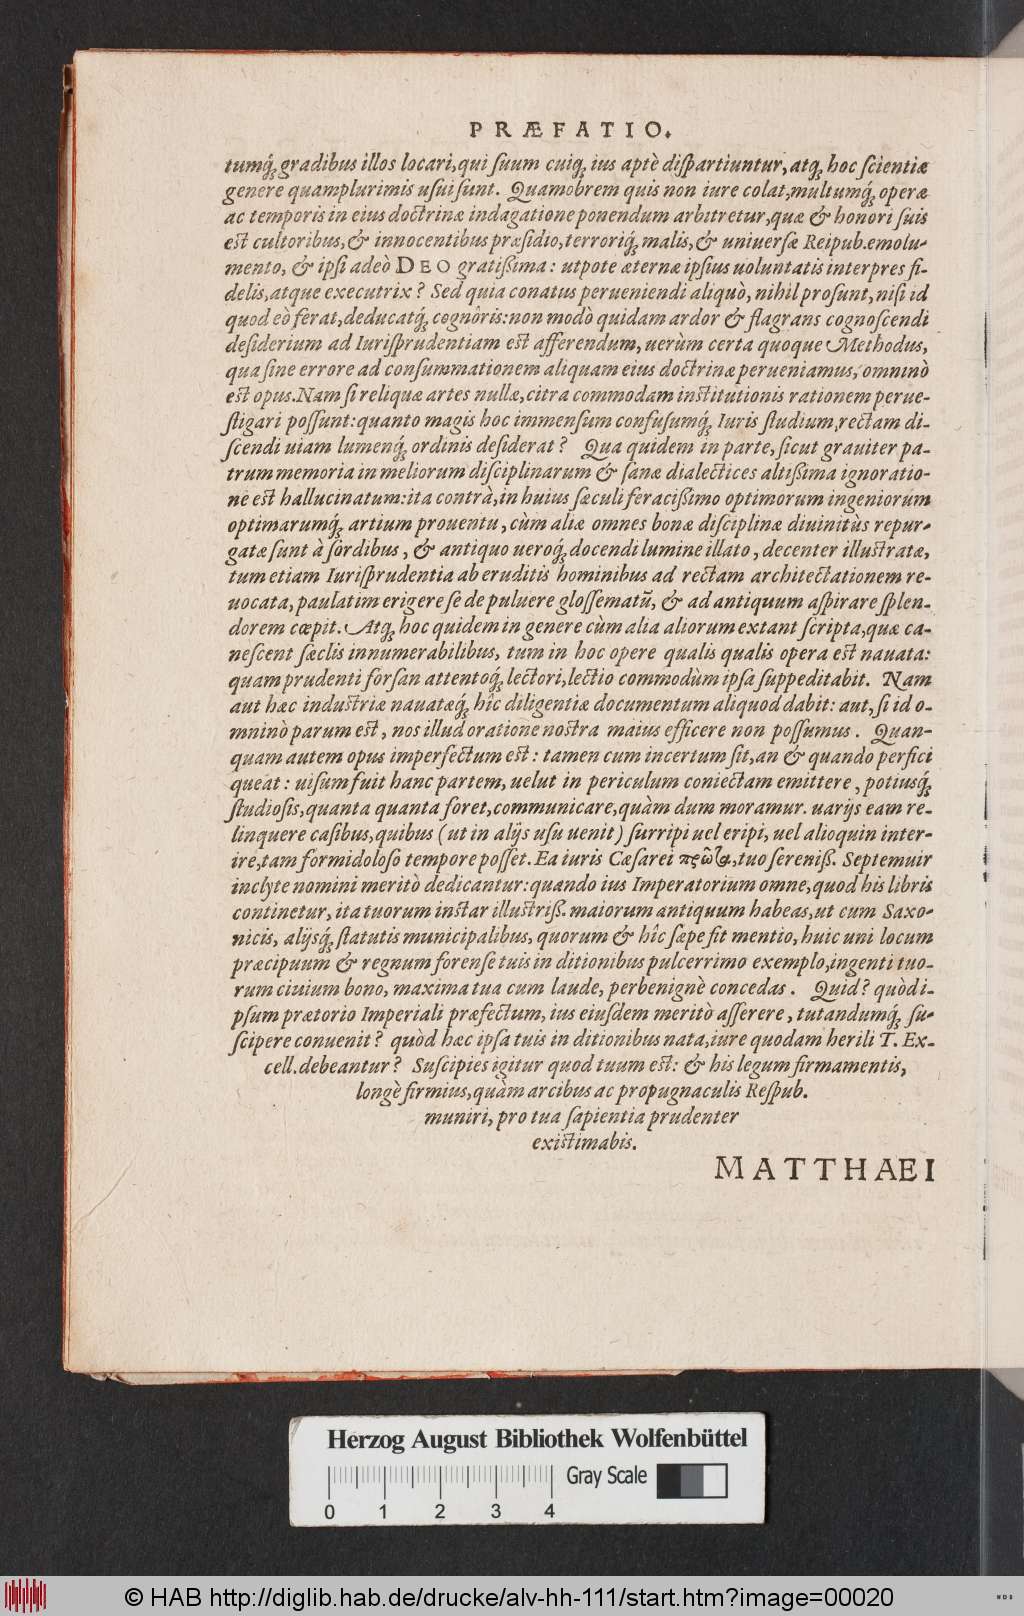 PRÆFATIO.
tumq́; gradibus illos locari, qui ſuum cuiq; ius aptè diſpartiuntur, atq; hoc ſcientiæ
genere quamplurimis uſui ſunt. Quamobrem quis non iure colat, multumq́; operæ
ac temporis in eius doctrinæ indagatione ponendum arbitretur, quæ & honori ſuis
eſt cultoribus, & innocentibus præſidio, terroriq́; malis, & uniuerſæ Reipub. emolu-
mento, & ipſi adeò DEO gratißima: utpote æternæ ipſius uoluntatis interpres fi-
delis, atque executrix? Sed quia conatus perueniendi aliquò, nihil proſunt, niſi id
quod eò ferat, deducatq́; cognôris: non modò quidam ardor & flagrans cognoſcendi
deſiderium ad Iuriſprudentiam eſt afferendum, uerùm certa quoque Methodus,
qua ſine errore ad conſummationem aliquam eius doctrinæ perueniamus, omninò
eſt opus. Nam ſi reliquæ artes nullæ, citra commodam inſtitutionis rationem perue-
ſtigari poſſunt: quanto magis hoc immenſum confuſumq́; Iuris ſtudium, rectam di-
ſcendi uiam lumenq́; ordinis deſiderat? Qua quidem in parte, ſicut grauiter pa-
trum memoria in meliorum diſciplinarum & ſanæ dialectices altißima ignoratio-
ne eſt hallucinatum: ita contrà, in huius ſæculi feracißimo optimorum ingeniorum
optimarumq́; artium prouentu, cùm aliæ omnes bonæ diſciplinæ diuinitùs repur-
gatæ ſunt à ſordibus, & antiquo ueroq́; docendi lumine illato, decenter illuſtratæ,
tum etiam Iuriſprudentia ab eruditis hominibus ad rectam architectationem re-
uocata, paulatim erigere ſe de puluere gloſſematū, & ad antiquum aſpirare ſplen-
dorem cœpit. Atq; hoc quidem in genere cùm alia aliorum extant ſcripta, quæ ca-
neſcent ſæclis innumerabilibus, tum in hoc opere qualis qualis opera eſt nauata:
quam prudenti forſan attentoq́; lectori, lectio commodùm ipſa ſuppeditabit. Nam
aut hæc induſtriæ nauatæq́; hîc diligentiæ documentum aliquod dabit: aut, ſi id o-
mninò parum eſt, nos illud oratione noſtra maius efficere non poſſumus. Quan-
quam autem opus imperfectum eſt: tamen cum incertum ſit, an & quando perfici
queat: uiſum fuit hanc partem, uelut in periculum coniectam emittere, potiusq́;
ſtudioſis, quanta quanta foret, communicare, quàm dum moramur. uarijs eam re-
linquere caſibus, quibus (ut in alijs uſu uenit) ſurripi uel eripi, uel alioquin inter-
ire, tam formidoloſo tempore poſſet. Ea iuris Cæſarei, tuo ſereniß. Septemuir
inclyte nomini meritò dedicantur: quando ius Imperatorium omne, quod his libris
continetur, ita tuorum inſtar illuſtriß. maiorum antiquum habeas, ut cum Saxo-
nicis, alijsq́; ſtatutis municipalibus, quorum & hîc ſæpe fit mentio, huic uni locum
præcipuum & regnum forenſe tuis in ditionibus pulcerrimo exemplo, ingenti tuo-
rum ciuium bono, maxima tua cum laude, perbenignè concedas. Quid? quòd i-
pſum prætorio Imperiali præfectum, ius eiuſdem meritò aſſerere, tutandumq́; ſu-
ſcipere conuenit? quòd hæc ipſa tuis in ditionibus nata, iure quodam herili T. Ex-
cell. debeantur? Suſcipies igitur quod tuum eſt: & his legum firmamentis,
longè firmius, quàm arcibus ac propugnaculis Reſpub.
muniri, pro tua ſapientia prudenter
existimabis.
MATTHAEI
Herzog August Bibliothek Wolfenbüttel
Gray Scale
0 1 2 3 4
© HAB http://diglib.hab.de/drucke/alv-hh-111/start.htm?image=00020